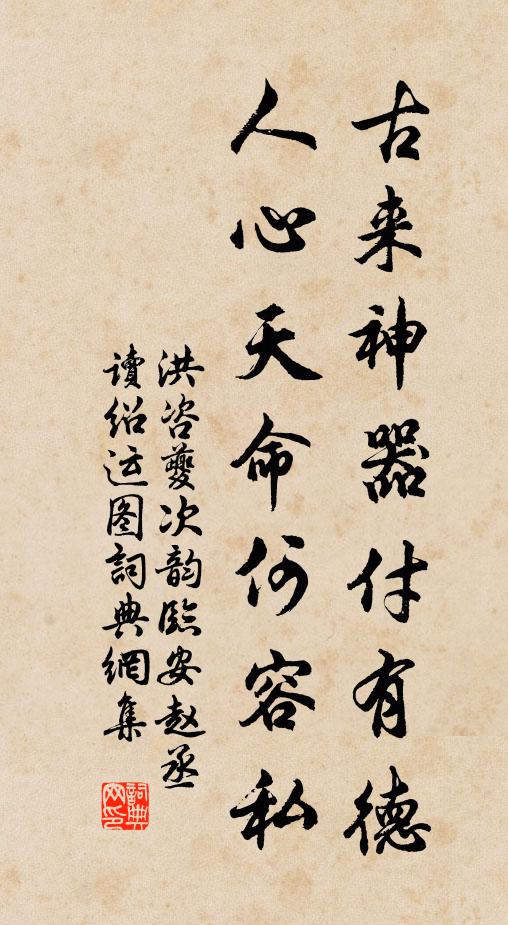 古来神器付有德
人心天命何容私
洪咨夔次韵臨安赵丞
讀绍运图詞典網集
詞典網印